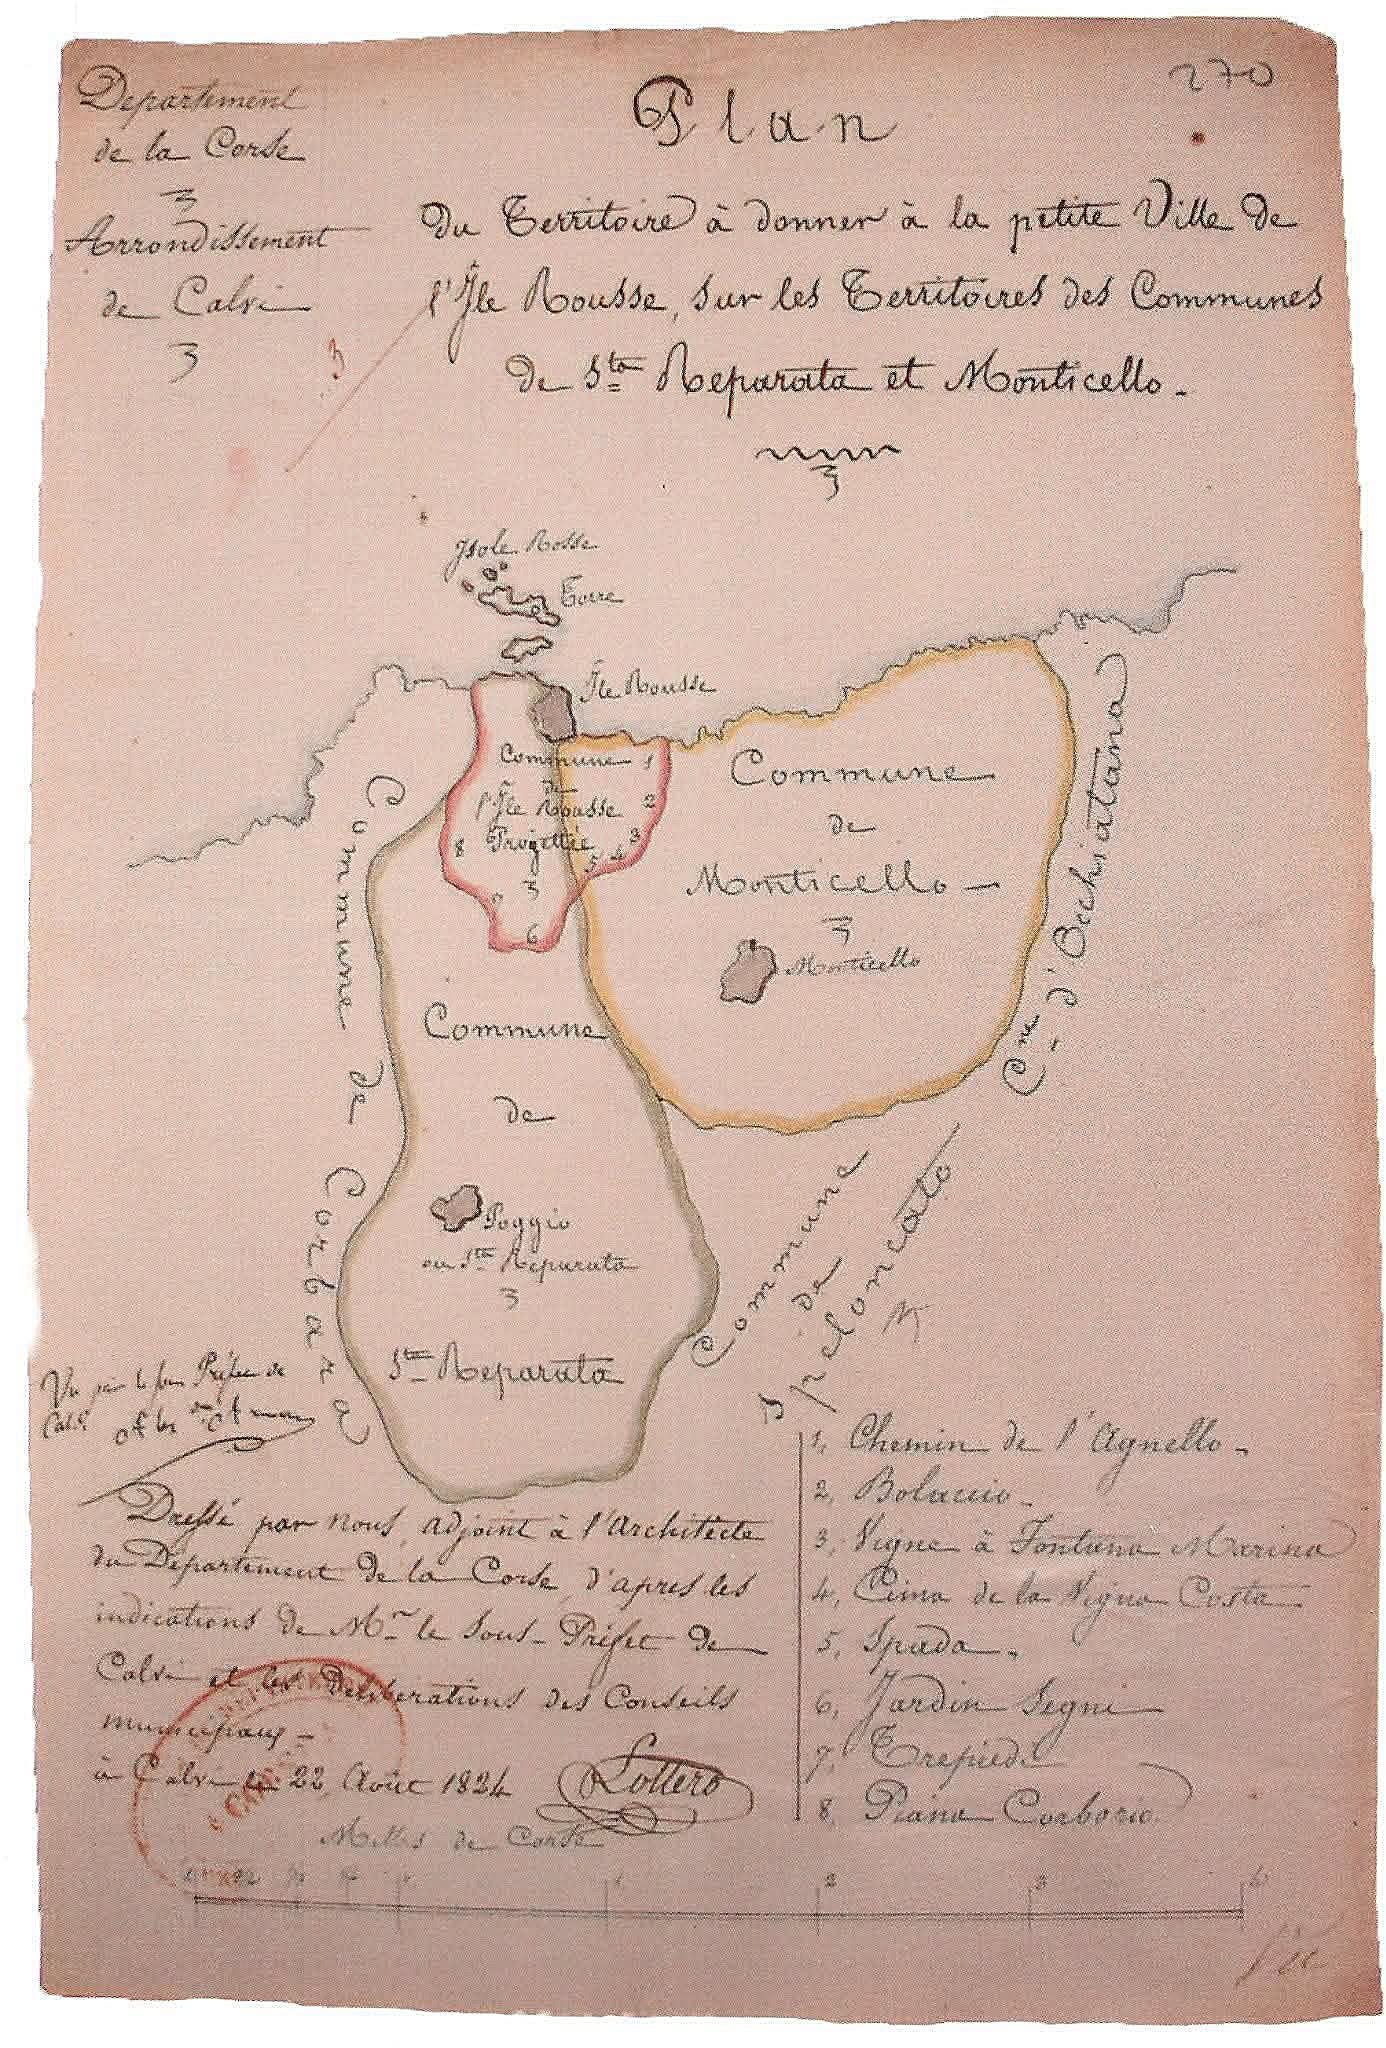 270
Departement
de la Corse
Arrondissement
de Calvi
Plan
du Territoire à donner à la petite Ville de
l'Île Rousse, sur les Territoires des Communes
de Sta Reparata et Monticello.
Isole Rosse
Torre
Île Rousse
Commune
de
l'Île Rousse
Projettée
1
2
3
4
5
6
7
8
Commune
de
Monticello
Monticello
Cne d'Occhiatana
Commune de Corbara
Commune
de
Poggio
ou Sta Reparata
Sta Reparata
Commune
de
Speloncato
Vu par le Sous Préfet de
Calvi
Dressé par nous, adjoint à l'Architecte
du Département de la Corse, d'après les
indications de Mr le Sous-Préfet de
Calvi et les Déliberations des Conseils
municipaux
à Calvi le 22, Août 1824 Lottero
1, Chemin de l'Agnello.
2, Bolaccio.
3, Vigne à Fontana Marina
4, Cima de la Vigna Costa
5, Spada.
6, Jardin Segni
7, Trepiedi
8, Piana Corborio.
Milles de Corse
1 2 3